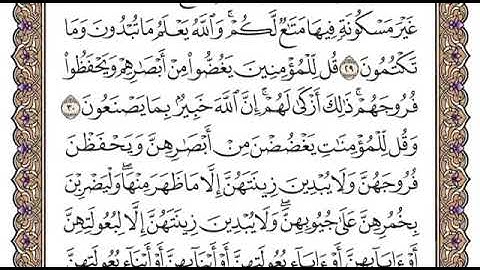 غَيْرَ مَسْكُونَةٍ فِيهَا مَتَٰعٌ لَّكُمْ ۚ وَٱللَّهُ يَعْلَمُ مَا تُبْدُونَ وَمَا
تَكْتُمُونَ ٢٩ قُل لِّلْمُؤْمِنِينَ يَغُضُّوا۟ مِنْ أَبْصَٰرِهِمْ وَيَحْفَظُوا۟
فُرُوجَهُمْ ۚ ذَٰلِكَ أَزْكَىٰ لَهُمْ ۗ إِنَّ ٱللَّهَ خَبِيرٌۢ بِمَا يَصْنَعُونَ ٣٠
وَقُل لِّلْمُؤْمِنَٰتِ يَغْضُضْنَ مِنْ أَبْصَٰرِهِنَّ وَيَحْفَظْنَ
فُرُوجَهُنَّ وَلَا يُبْدِينَ زِينَتَهُنَّ إِلَّا مَا ظَهَرَ مِنْهَا ۖ وَلْيَضْرِبْنَ
بِخُمُرِهِنَّ عَلَىٰ جُيُوبِهِنَّ ۖ وَلَا يُبْدِينَ زِينَتَهُنَّ إِلَّا لِبُعُولَتِهِنَّ
أَوْ ءَابَآئِهِنَّ أَوْ ءَابَآءِ بُعُولَتِهِنَّ أَوْ أَبْنَآئِهِنَّ أَوْ أَبْنَآءِ بُعُولَتِهِنَّ